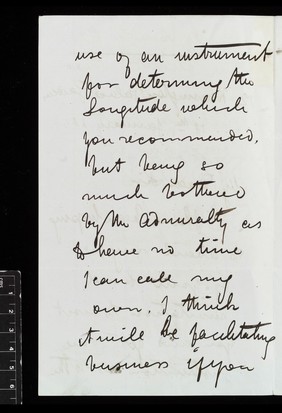 use of an instrument
for determing the
Longitude which
you recommended,
but being so
much bothered
by the Admiralty as
to have no time
I can call my
own. I think
it will be facilitating
business if you